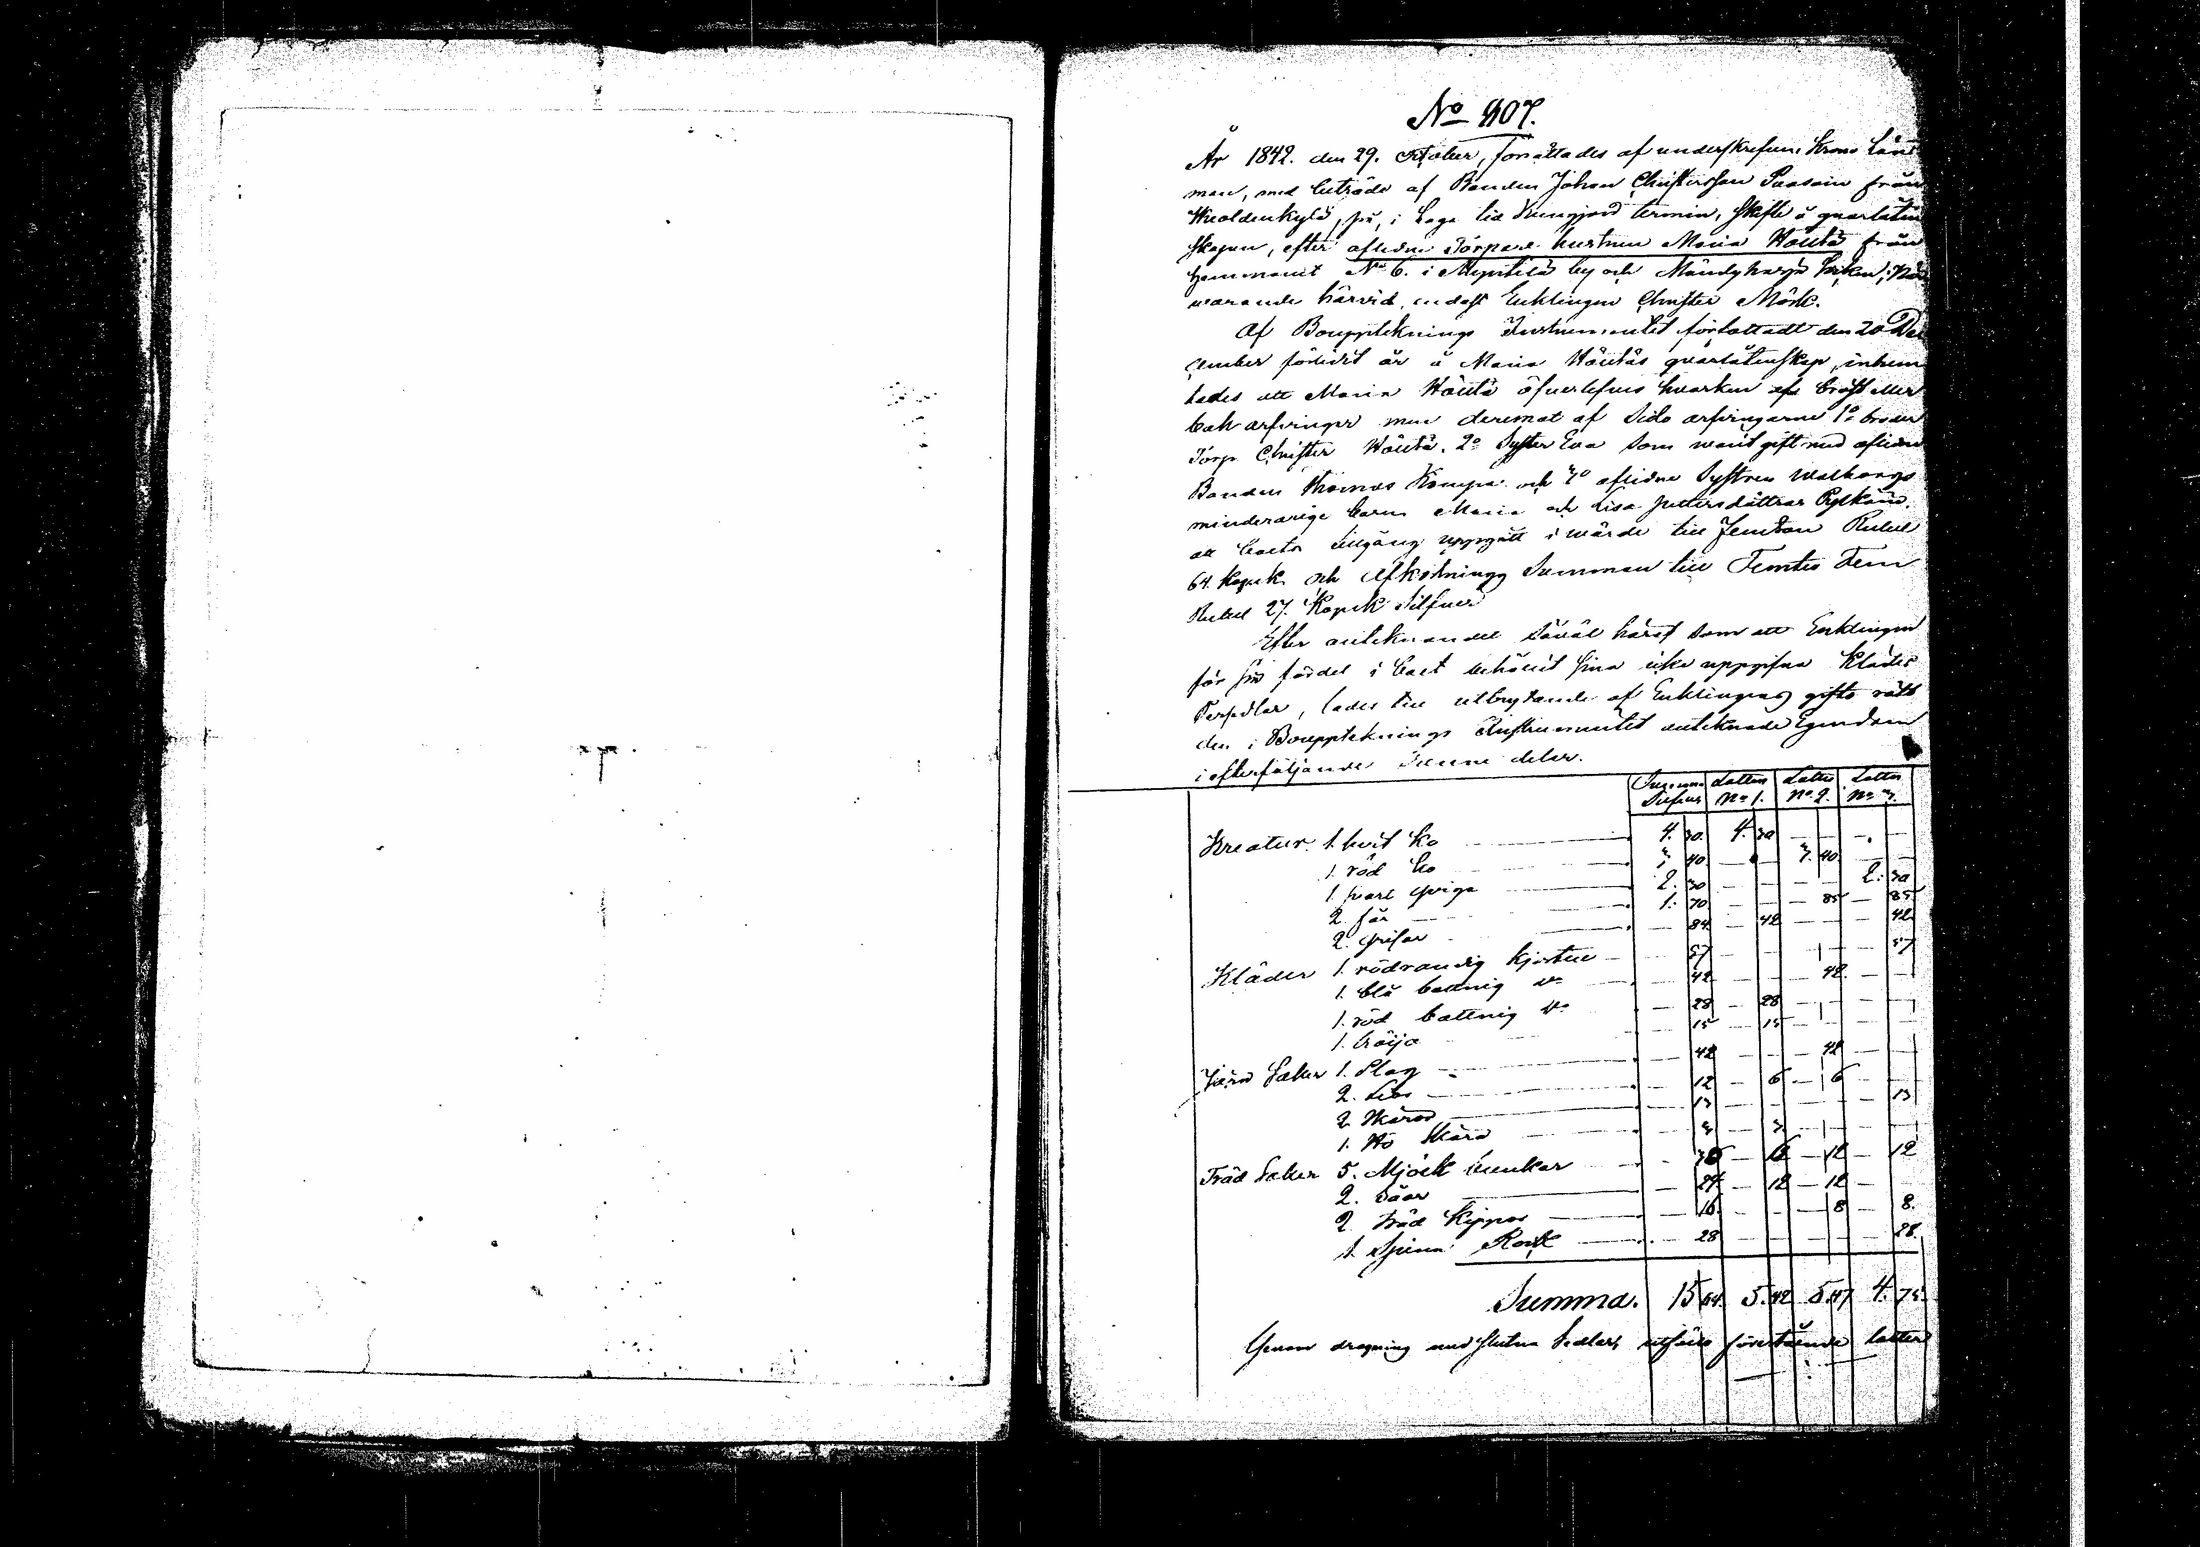 No 407.
År 1842. den 29. October, förrättades af underskrefne Krono Läns
man, med biträde af Bonden Johan Christersson Paasoin från
Kuoldenkylä, på, i laga tid kungjord termin, skifte å qvarlåten
skapen, efter aflidne Torpare hustrun Maria Höltä från
hemmanet No 6. i by och Mändyharju Socken; När
warande härvid endast Enklingen Christer Mörk.
Af Boupptecknings Instrumentet författadt den 20 De
cember förlidit år å Maria Höltäs qvarlåtenskap, inhem
tades att Maria Höltä öfverlefves hvarken af bröst eller
bak arfvingar men deremot af sido arfvingarne 1o broder
Torp. Christer Höltä. 2o Syster Eva som warit gift med aflidne
Bonden Thomas Kompa och 3o aflidne Systren Walborgs
minderårige barn Maria och Lisa Pettersdöttrar
att boets tillgång uppgått i wärde till femton Rubel
64. Kopek och Afkortnings Summan till Femtio Fem
Rubel 27. Kopek Silfver
Efter antecknandet såväl häraf som att Enklingen
för sin fördel i boet behållit sina icke uppgifna Kläder
Persedlar, lades till utbrytande af Enklingens gifto rätt
den i Boupptecknings Instrumentet antecknade Egendom
i efterföljande trenne delar.
Summa Silfver Lotten No 1. Lotten No 2. Lotten No 3.
Kreatur 1. hvit Ko 4. 30. 4. 30
1. röd Ko 3 40 3. 40
1. svart qviga 2. 30 2. 30
2 får 1. 70 85 85
2. grisar 84 42 42
Kläder 1. rödrandig kjortel 57 57
1. blå bottnig do 42 42.
1. röd bottnig do 28 28
1. tröija 15 15
Järn Saker 1. Plog 42 42
2. Liar 12 6 6
2 Skäror 13 13
1. Hö Skära 3 3
Träd Saker 5. Mjölk bunkar 36 12 12 12
2. Såar 24 12 12
2 träd Kippor 16 8 8.
1. Spinn Rock 28 28
Summa. 15 64. 5. 42 5. 47 4. 75.
Genom dragning med slutna Sedlar, utföllo förestående lotter